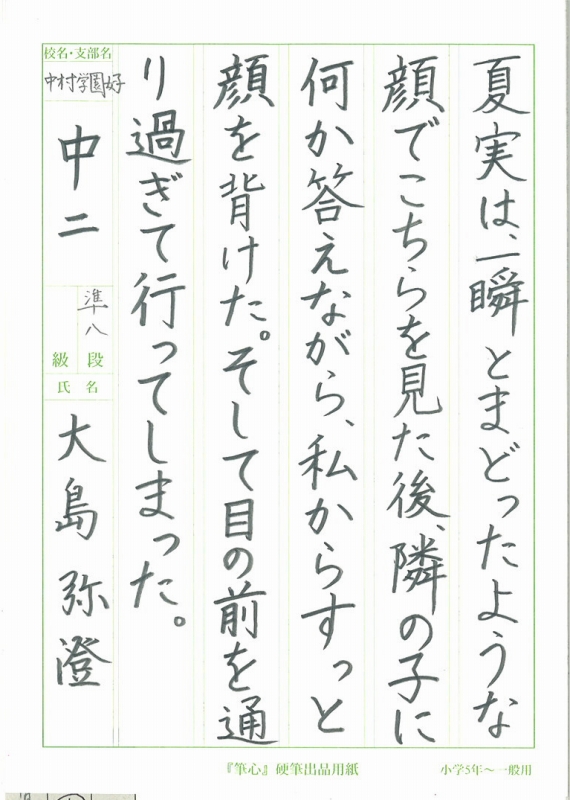 夏実は、一瞬とまどったような
顔でこちらを見た後、隣の子に
何か答えながら、私からすっと
顔を背けた。そして目の前を通
り過ぎて行ってしまった。
校名・支部名
中村学園好
中二
準八
段
級
氏名
大島弥澄
『筆心』硬筆出品用紙
小学5年〜一般用